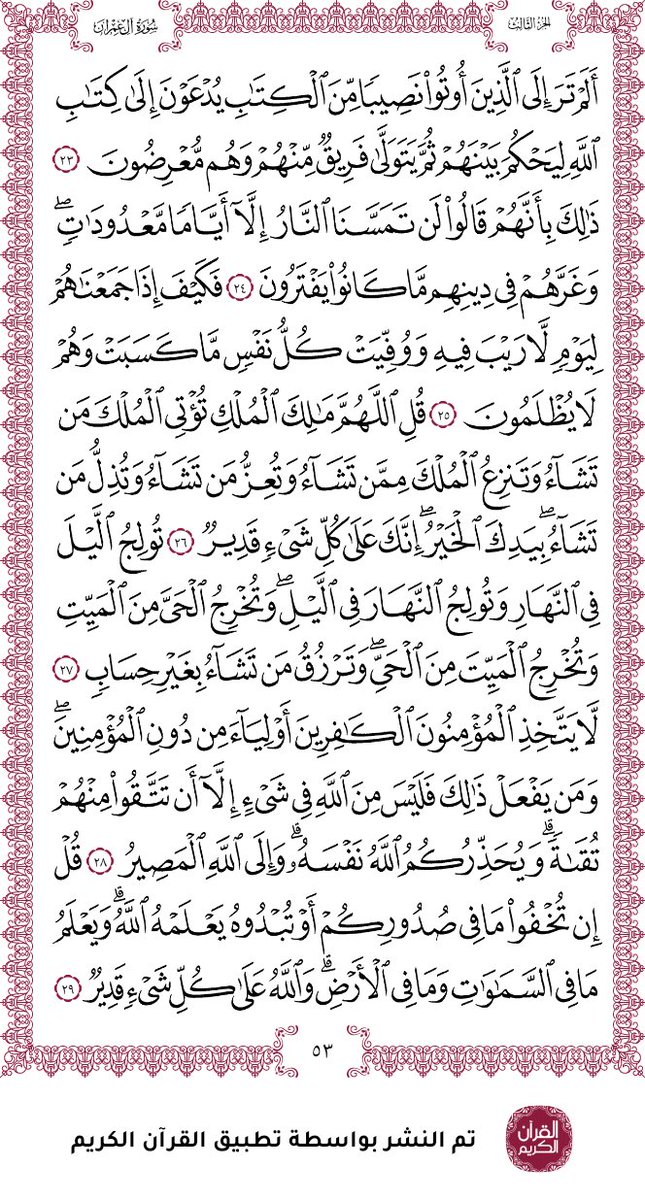 الجزء الثالث
سورة آل عمران
أَلَمْ تَرَ إِلَى ٱلَّذِينَ أُوتُوا۟ نَصِيبًا مِّنَ ٱلْكِتَـٰبِ يُدْعَوْنَ إِلَىٰ كِتَـٰبِ
ٱللَّهِ لِيَحْكُمَ بَيْنَهُمْ ثُمَّ يَتَوَلَّىٰ فَرِيقٌ مِّنْهُمْ وَهُم مُّعْرِضُونَ ٢٣
ذَٰلِكَ بِأَنَّهُمْ قَالُوا۟ لَن تَمَسَّنَا ٱلنَّارُ إِلَّآ أَيَّامًا مَّعْدُودَٰتٍ ۖ
وَغَرَّهُمْ فِى دِينِهِم مَّا كَانُوا۟ يَفْتَرُونَ ٢٤ فَكَيْفَ إِذَا جَمَعْنَـٰهُمْ
لِيَوْمٍ لَّا رَيْبَ فِيهِ وَوُفِّيَتْ كُلُّ نَفْسٍ مَّا كَسَبَتْ وَهُمْ
لَا يُظْلَمُونَ ٢٥ قُلِ ٱللَّهُمَّ مَـٰلِكَ ٱلْمُلْكِ تُؤْتِى ٱلْمُلْكَ مَن
تَشَآءُ وَتَنزِعُ ٱلْمُلْكَ مِمَّن تَشَآءُ وَتُعِزُّ مَن تَشَآءُ وَتُذِلُّ مَن
تَشَآءُ ۖ بِيَدِكَ ٱلْخَيْرُ ۖ إِنَّكَ عَلَىٰ كُلِّ شَىْءٍ قَدِيرٌ ٢٦ تُولِجُ ٱلَّيْلَ
فِى ٱلنَّهَارِ وَتُولِجُ ٱلنَّهَارَ فِى ٱلَّيْلِ ۖ وَتُخْرِجُ ٱلْحَىَّ مِنَ ٱلْمَيِّتِ
وَتُخْرِجُ ٱلْمَيِّتَ مِنَ ٱلْحَىِّ ۖ وَتَرْزُقُ مَن تَشَآءُ بِغَيْرِ حِسَابٍ ٢٧
لَّا يَتَّخِذِ ٱلْمُؤْمِنُونَ ٱلْكَـٰفِرِينَ أَوْلِيَآءَ مِن دُونِ ٱلْمُؤْمِنِينَ ۖ
وَمَن يَفْعَلْ ذَٰلِكَ فَلَيْسَ مِنَ ٱللَّهِ فِى شَىْءٍ إِلَّآ أَن تَتَّقُوا۟ مِنْهُمْ
تُقَىٰةً ۗ وَيُحَذِّرُكُمُ ٱللَّهُ نَفْسَهُۥ ۗ وَإِلَى ٱللَّهِ ٱلْمَصِيرُ ٢٨ قُلْ
إِن تُخْفُوا۟ مَا فِى صُدُورِكُمْ أَوْ تُبْدُوهُ يَعْلَمْهُ ٱللَّهُ ۗ وَيَعْلَمُ
مَا فِى ٱلسَّمَـٰوَٰتِ وَمَا فِى ٱلْأَرْضِ ۗ وَٱللَّهُ عَلَىٰ كُلِّ شَىْءٍ قَدِيرٌ ٢٩
٥٣
القرآن
الكريم
تم النشر بواسطة تطبيق القرآن الكريم